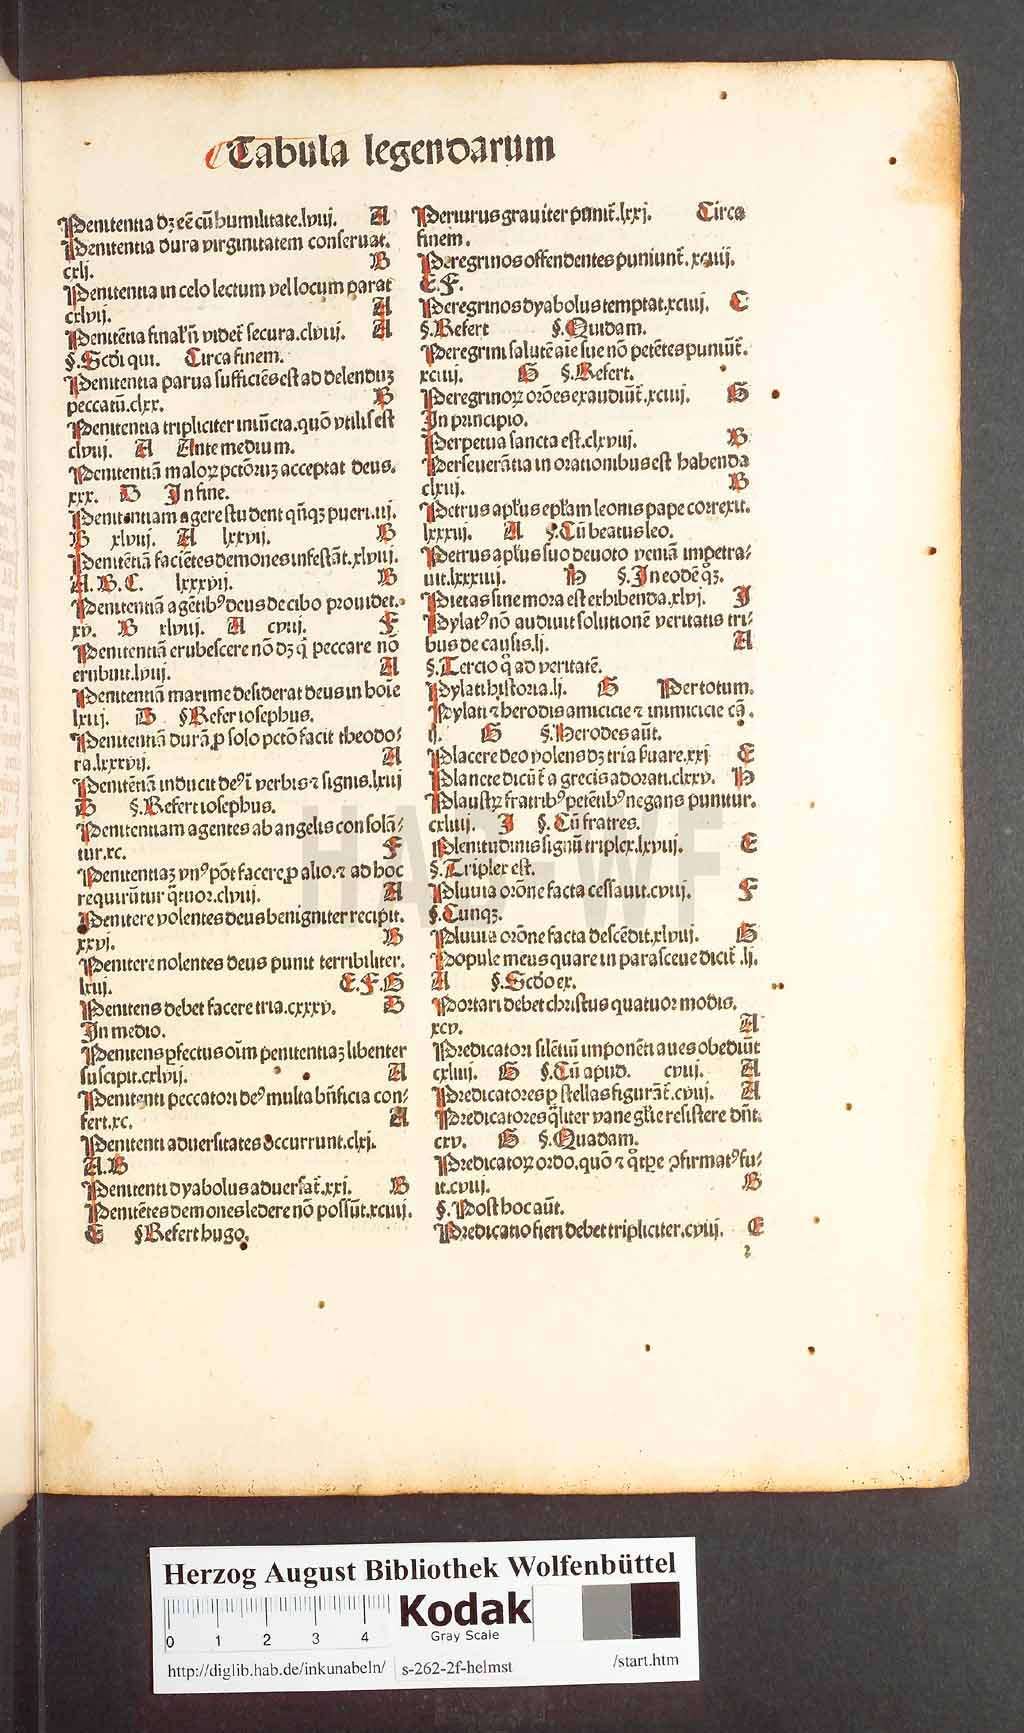 Tabula legendarum
Penitentia dꝫ eē cū humilitate.lviij. A
Penitentia dura virginitatem conseruat.
cxlj. B
Penitentia in celo lectum vel locum parat
cxlvij. A
Penitētia final' n̄ videt᷑ secura.clviij. A
§.Scd̄i qui. Circa finem.
Penitentia parua sufficiēs est ad delenduꝫ
peccatū.clxx. B
Penitentia tripliciter iniūcta.quō vtilis est
clviij. A Ante medium.
Penitentiā maloꝝ pctōruꝫ acceptat deus.
xxx. D In fine.
Penitentiam agere student qn̄qꝫ pueri.iij.
B xlviij. A lxxvij. B
Penitētiā faciētes demones infestāt.xlviij.
A.B.C. lxxxvij. B
Penitentiā agētibꝰ deus de cibo prouidet.
xv. B xlviij. A cviij. F
Penitentiā erubescere nō dꝫ q̄ peccare nō
erubuit.lviij. A
Penitentiā maxime desiderat deus in hoīe
lxiij. D §Refer iosephus.
Penitentiā durā ꝓ solo pctō facit theodo⸗
ra.lxxxvij. A
Penitētiā inducit deꝰ ī verbis ⁊ signis.lxiij
D §.Refert iosephus.
Penitentiam agentes ab angelis consolā⸗
tur.xc. F
Penitentiaꝫ vnꝰ pōt facere ꝓ alio.⁊ ad hoc
requirūtur q̄tuor.clviij. A
Penitere volentes deus benigniter recipit.
xxvj. B
Penitere nolentes deus punit terribiliter.
lxij. E.F.G
Penitens debet facere tria.cxxxv. D
In medio.
Penitens ꝑfectus oīm penitentiaꝫ libenter
suscipit.cxlvij. A
Penitenti peccatori deꝰ multa bn̄ficia con⸗
fert.xc. A
Penitenti aduersitates occurrunt.clxj.
A.B
Penitenti dyabolus aduersat᷑.xxj. B
Penitētes demones ledere nō possūt.xciiij.
E §Refert hugo.
Periurus grauiter punit᷑.lxxj. Circa
finem.
Peregrinos offendentes puniunt᷑.xciiij.
E.F.
Peregrinos dyabolus temptat.xciiij. C
§.Refert §.Quidam.
Peregrini salutē aīe sue nō petētes puniūt᷑.
xciiij. G §.Refert.
Peregrinoꝝ orōes exaudiūt᷑.xciiij. G
In principio.
Perpetua sancta est.clxviij. B
Perseuerātia in orationibus est habenda
clxij. B
Petrus apl'us epl'am leonis pape correxit.
lxxxij. A §.Cū beatus leo.
Petrus apl'us suo deuoto veniā impetra⸗
uit.lxxxiiij. H §.In eodē qꝫ.
Pietas sine mora est exhibenda.xlvj. I
Pylatꝰ nō audiuit solutionē veritatis tri⸗
bus de causis.lj. A
§.Tercio q̄ ad veritatē.
Pylati historia.lj. G Per totum.
Pylati ⁊ herodis amicicie ⁊ inimicicie cā.
lj. G §.Herodes aūt.
Placere deo volens dꝫ tria s̄uare.xxj E
Plancte dicūt᷑ a grecis adorati.clxxv. H
Plaustꝝ fratribꝰ petētibꝰ negans punitur.
cxliij. I §.Cū fratres.
Plenitudinis signū triplex.lxviij. E
§.Triplex est.
Pluuia orōne facta cessauit.cviij. F
§.Cunqꝫ.
Pluuia orōne facta descēdit.xlviij. G
Popule meus quare in parasceue dicit᷑.lj.
A §.Scd̄o ex.
Portari debet christus quatuor modis.
xcv. A
Predicatori silētiū imponēti aues obediūt
cxliiij. G §.Cū apud. cviij. A
Predicatores ꝑ stellas figurāt᷑.cviij. A
Predicatores q̄liter vane gl'ie resistere dn̄t.
cxv. G §.Quadam.
Predicatoꝝ ordo.quō ⁊ ꝯfirmatꝰ fu⸗
it.cviij. B
§.Post hoc aūt.
Predicatio fieri debet tripliciter.cviij. E
2
HAB WF
Herzog August Bibliothek Wolfenbüttel
0 1 2 3 4
Kodak
Gray Scale
http://diglib.hab.de/inkunabeln/ s-262-2f-helmst /start.htm